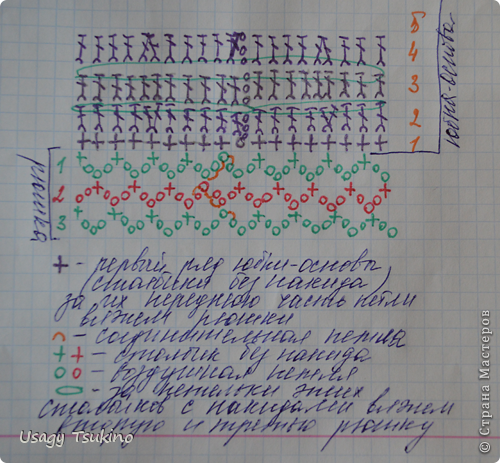 5
4
3
2
1
юбка-основа
1
2
3
рюши
+ - первый ряд юбки-основы
столбики без накида,
за их переднюю часть петли
вяжем рюшки
- соединительная петля
+ + - столбик без накида
о о - воздушная петля
- за петельки этих
столбиков с накидами вяжем
вторую и третью рюшку
Usagy Tsukino
© Страна Мастеров